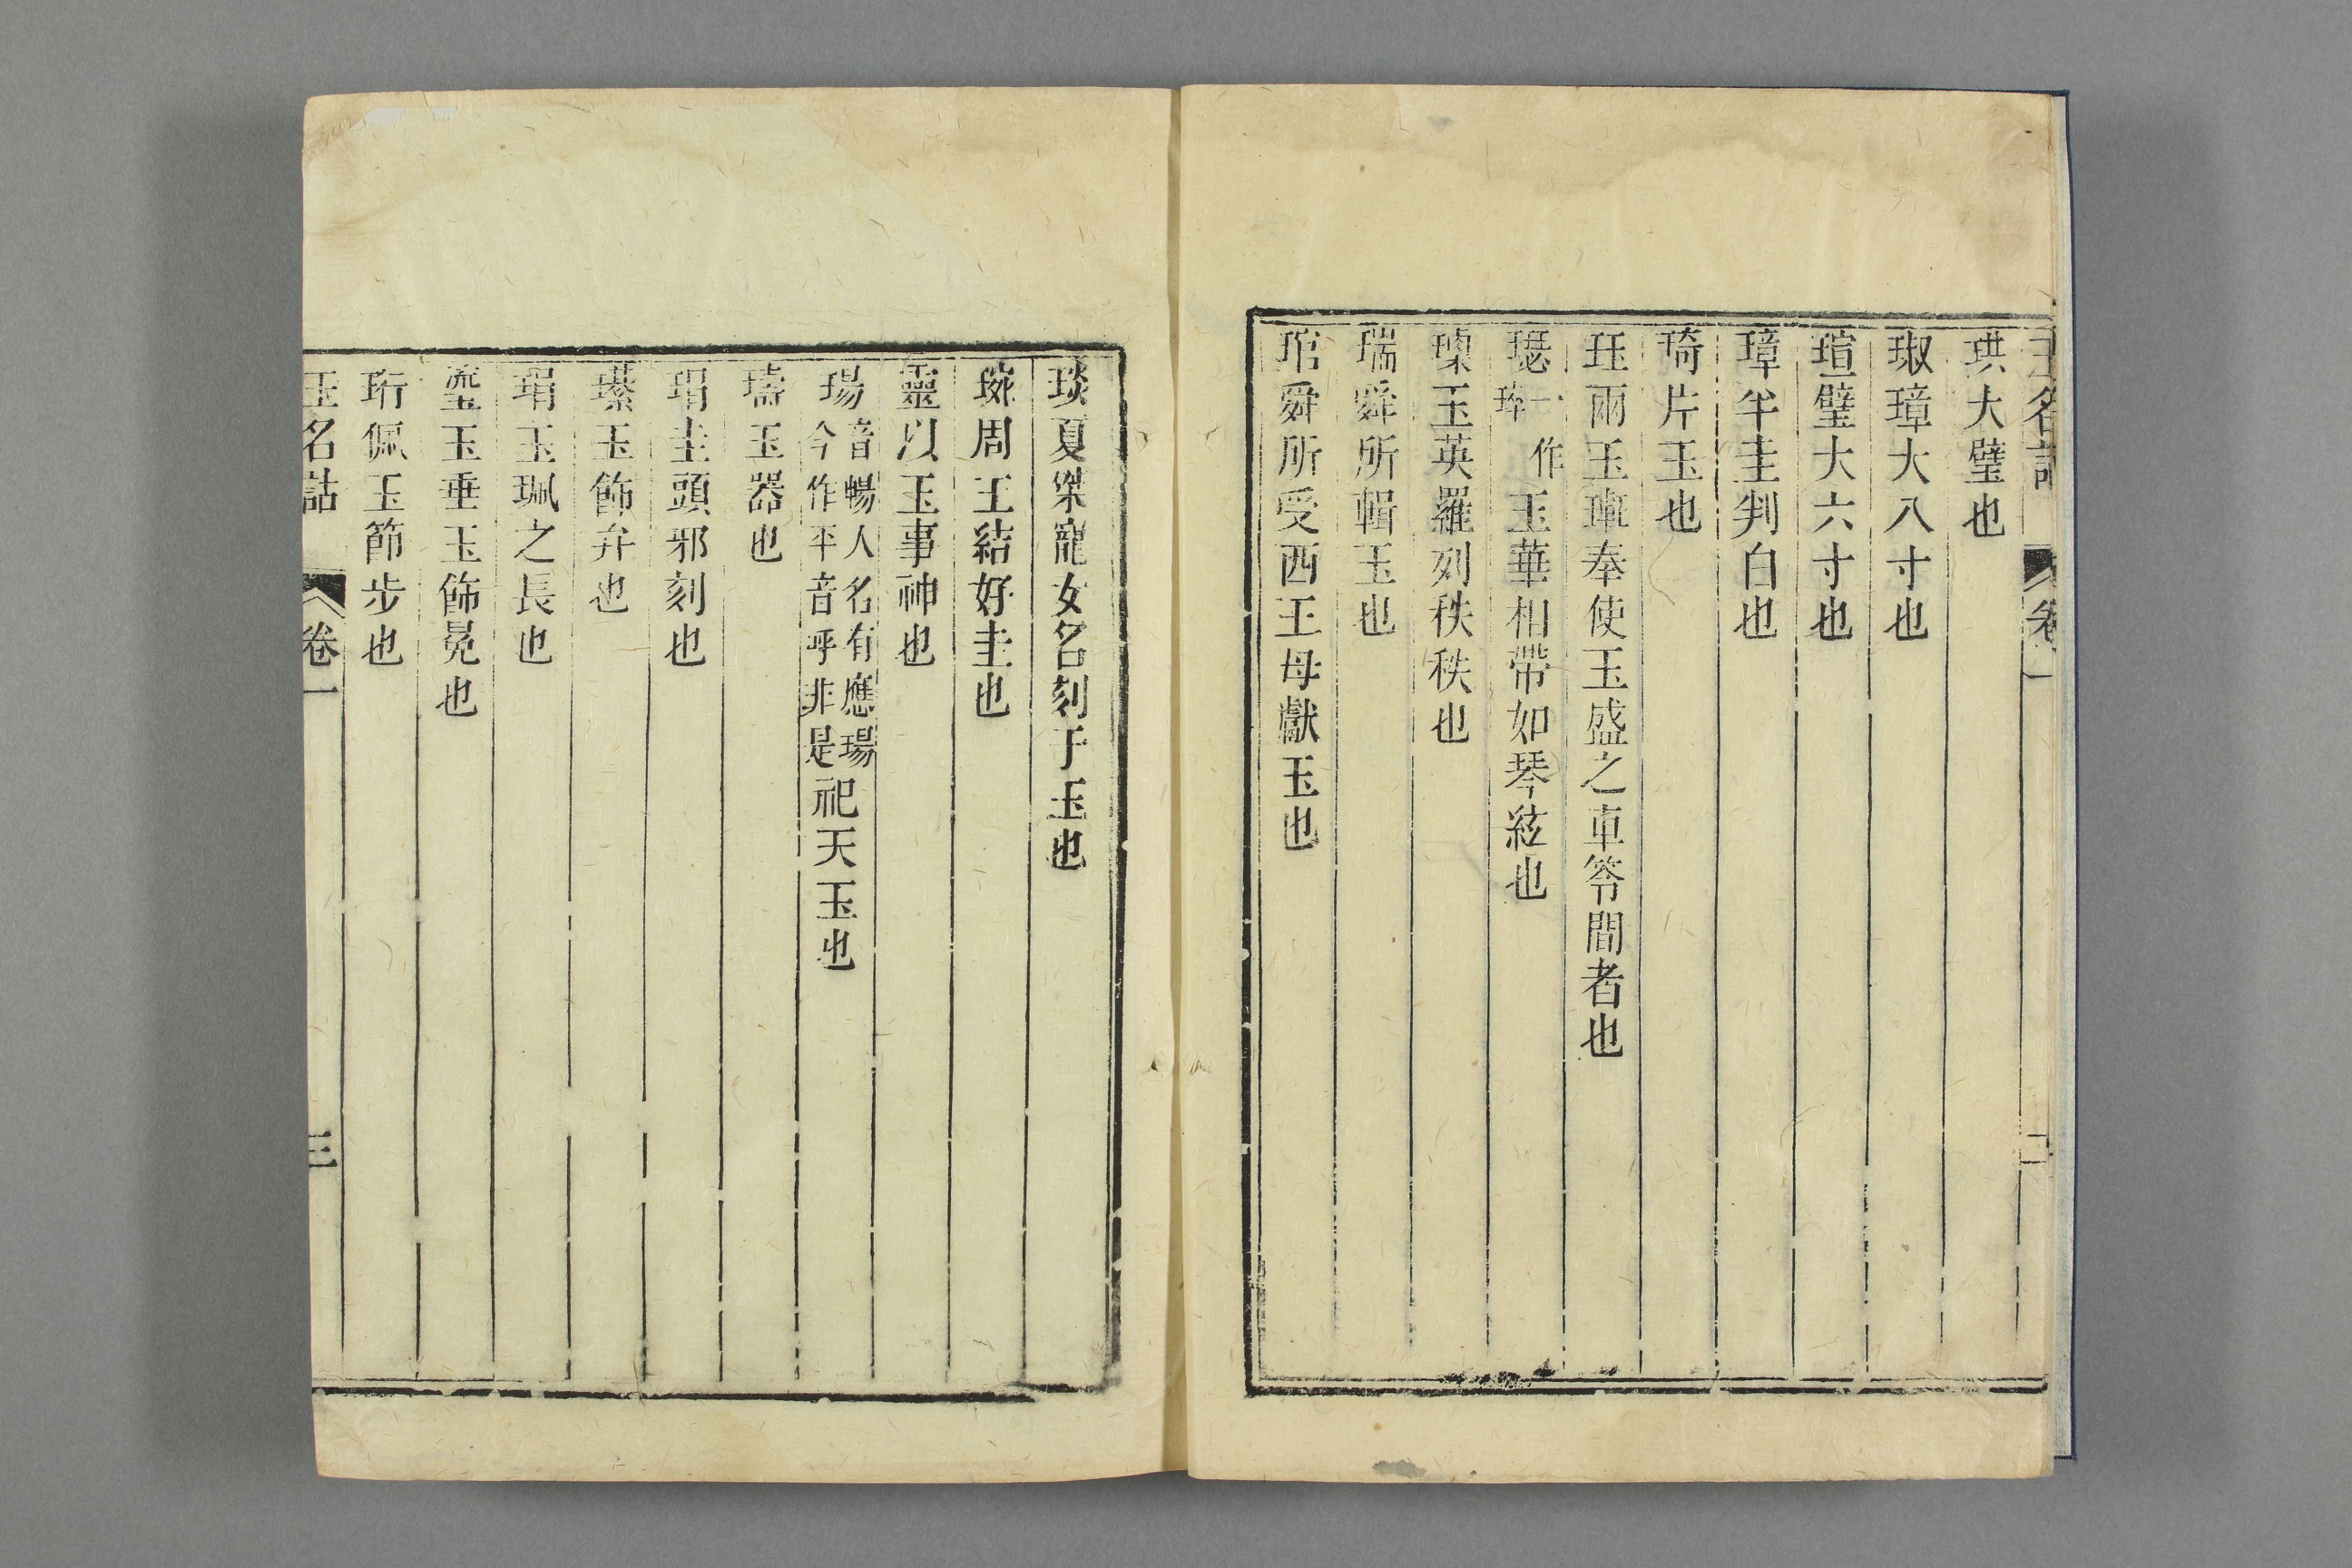 玉名詁 卷一 二
珙大璧也
琡璋大八寸也
瑄璧大六寸也
璋半圭判白也
琦片玉也
珏兩玉車奉使玉盛之車笭間者也
瑟一作玉華相帶如琴絃也
瑮玉英羅列秩秩也
瑞舜所輯玉也
琯舜所受西王母獻玉也
琰夏桀寵女名刻于玉也
琬周王結好圭也
靈以玉事神也
瑒音暢人名有應瑒今作平音呼非是祀天玉也
璹玉器也
瑁圭頭邪刻也
璂玉飾弁也
琄玉珮之長也
瑬玉垂玉飾冕也
珩佩玉節步也
玉名詁 卷一 三